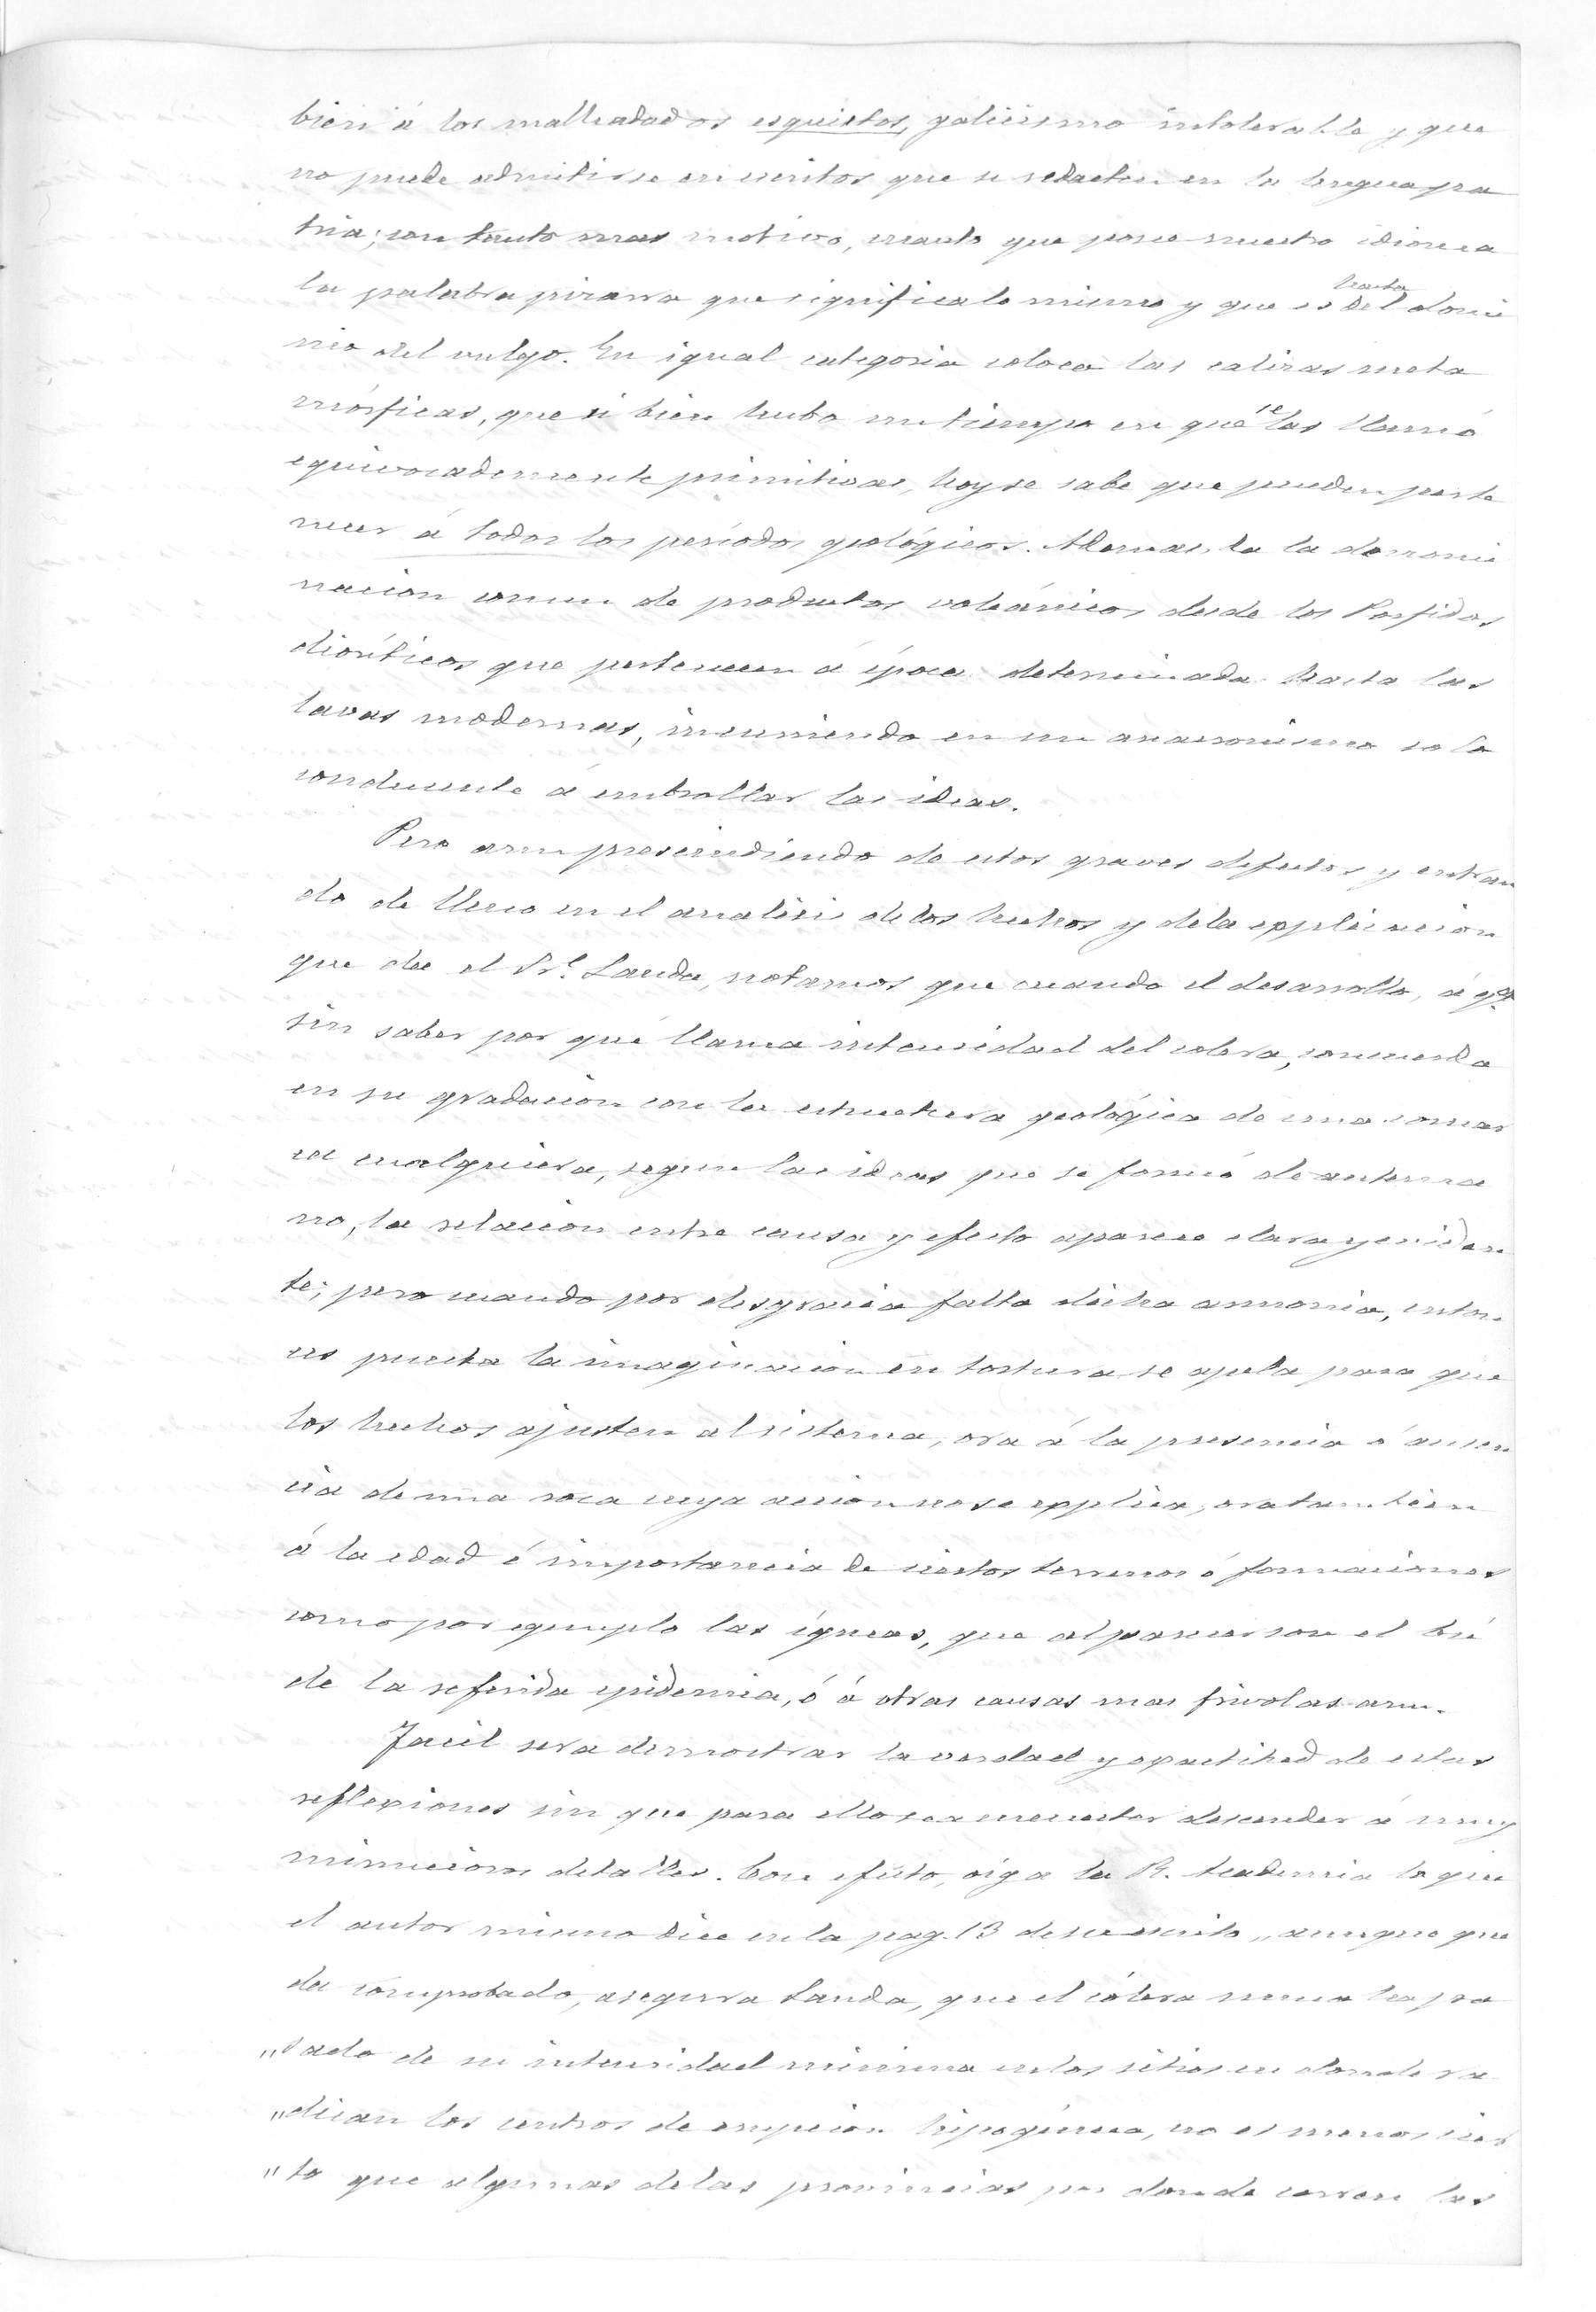 bien á los malhadados esquistos, galicismo intolerable y que
no puede admitirse en escritos que se redacten en la lengua pa
tria; con tanto mas motivo, cuanto que posee nuestro idioma
la palabra pizarra que significa lo mismo y que es hasta del domi
nio del vulgo. En igual categoria coloca las calizas meta
mórficas, que si bien hubo un tiempo en que se las llamó
equivocadamente primitivas, hoy se sabe que pueden perte
necer á todos los períodos geológicos. Ademas, da la denomi
nacion comun de productos volcánicos desde los Porfidos
dioríticos que pertenecen á época determinada hasta las
lavas modernas, incurriendo en un anacronismo solo
conducente á embrollar las ideas.
Pero aun prescindiendo de estos graves defectos y entran
do de lleno en el analisis de los hechos y de la explicacion
que da el Sr. Landa, notamos que cuando el desarrollo, á qe.
sin saber por qué llama intensidad del colera, concuerda
en su gradacion con la estructura geológica de una comar
ca cualquiera, segun las ideas que se formó de antema
no, la relacion entre causa y efecto aparece clara y eviden
te; pero cuando por desgracia falta dicha armonia, enton
ces puesta la imaginacion en tortura se apela para que
los hechos ajusten al sistema, ora á la presencia ó ausen
cia de una roca cuya accion no se explica, ora tambien
á la edad é importancia de ciertos terrenos ó formaciones
como por egemplo las ígneas, que al parecer son el bú
de la referida epidemia, ó á otras causas mas frivolas aun.
Facil sera demostrar la verdad y exactitud de estas
reflexiones sin que para ello sea menester descender á muy
minuciosos detalles. Con efecto, oiga la R. Academia lo que
el autor mismo dice en la pag. 13 de su escrito „aunque que
da comprobado, asegura Landa, que el cólera nunca ha pa
„sado de su intensidad minima en los sitios en donde ra
„dican los centros de erupcion hipogénica, no es menos cier
„to que algunas de las provincias por donde corren las